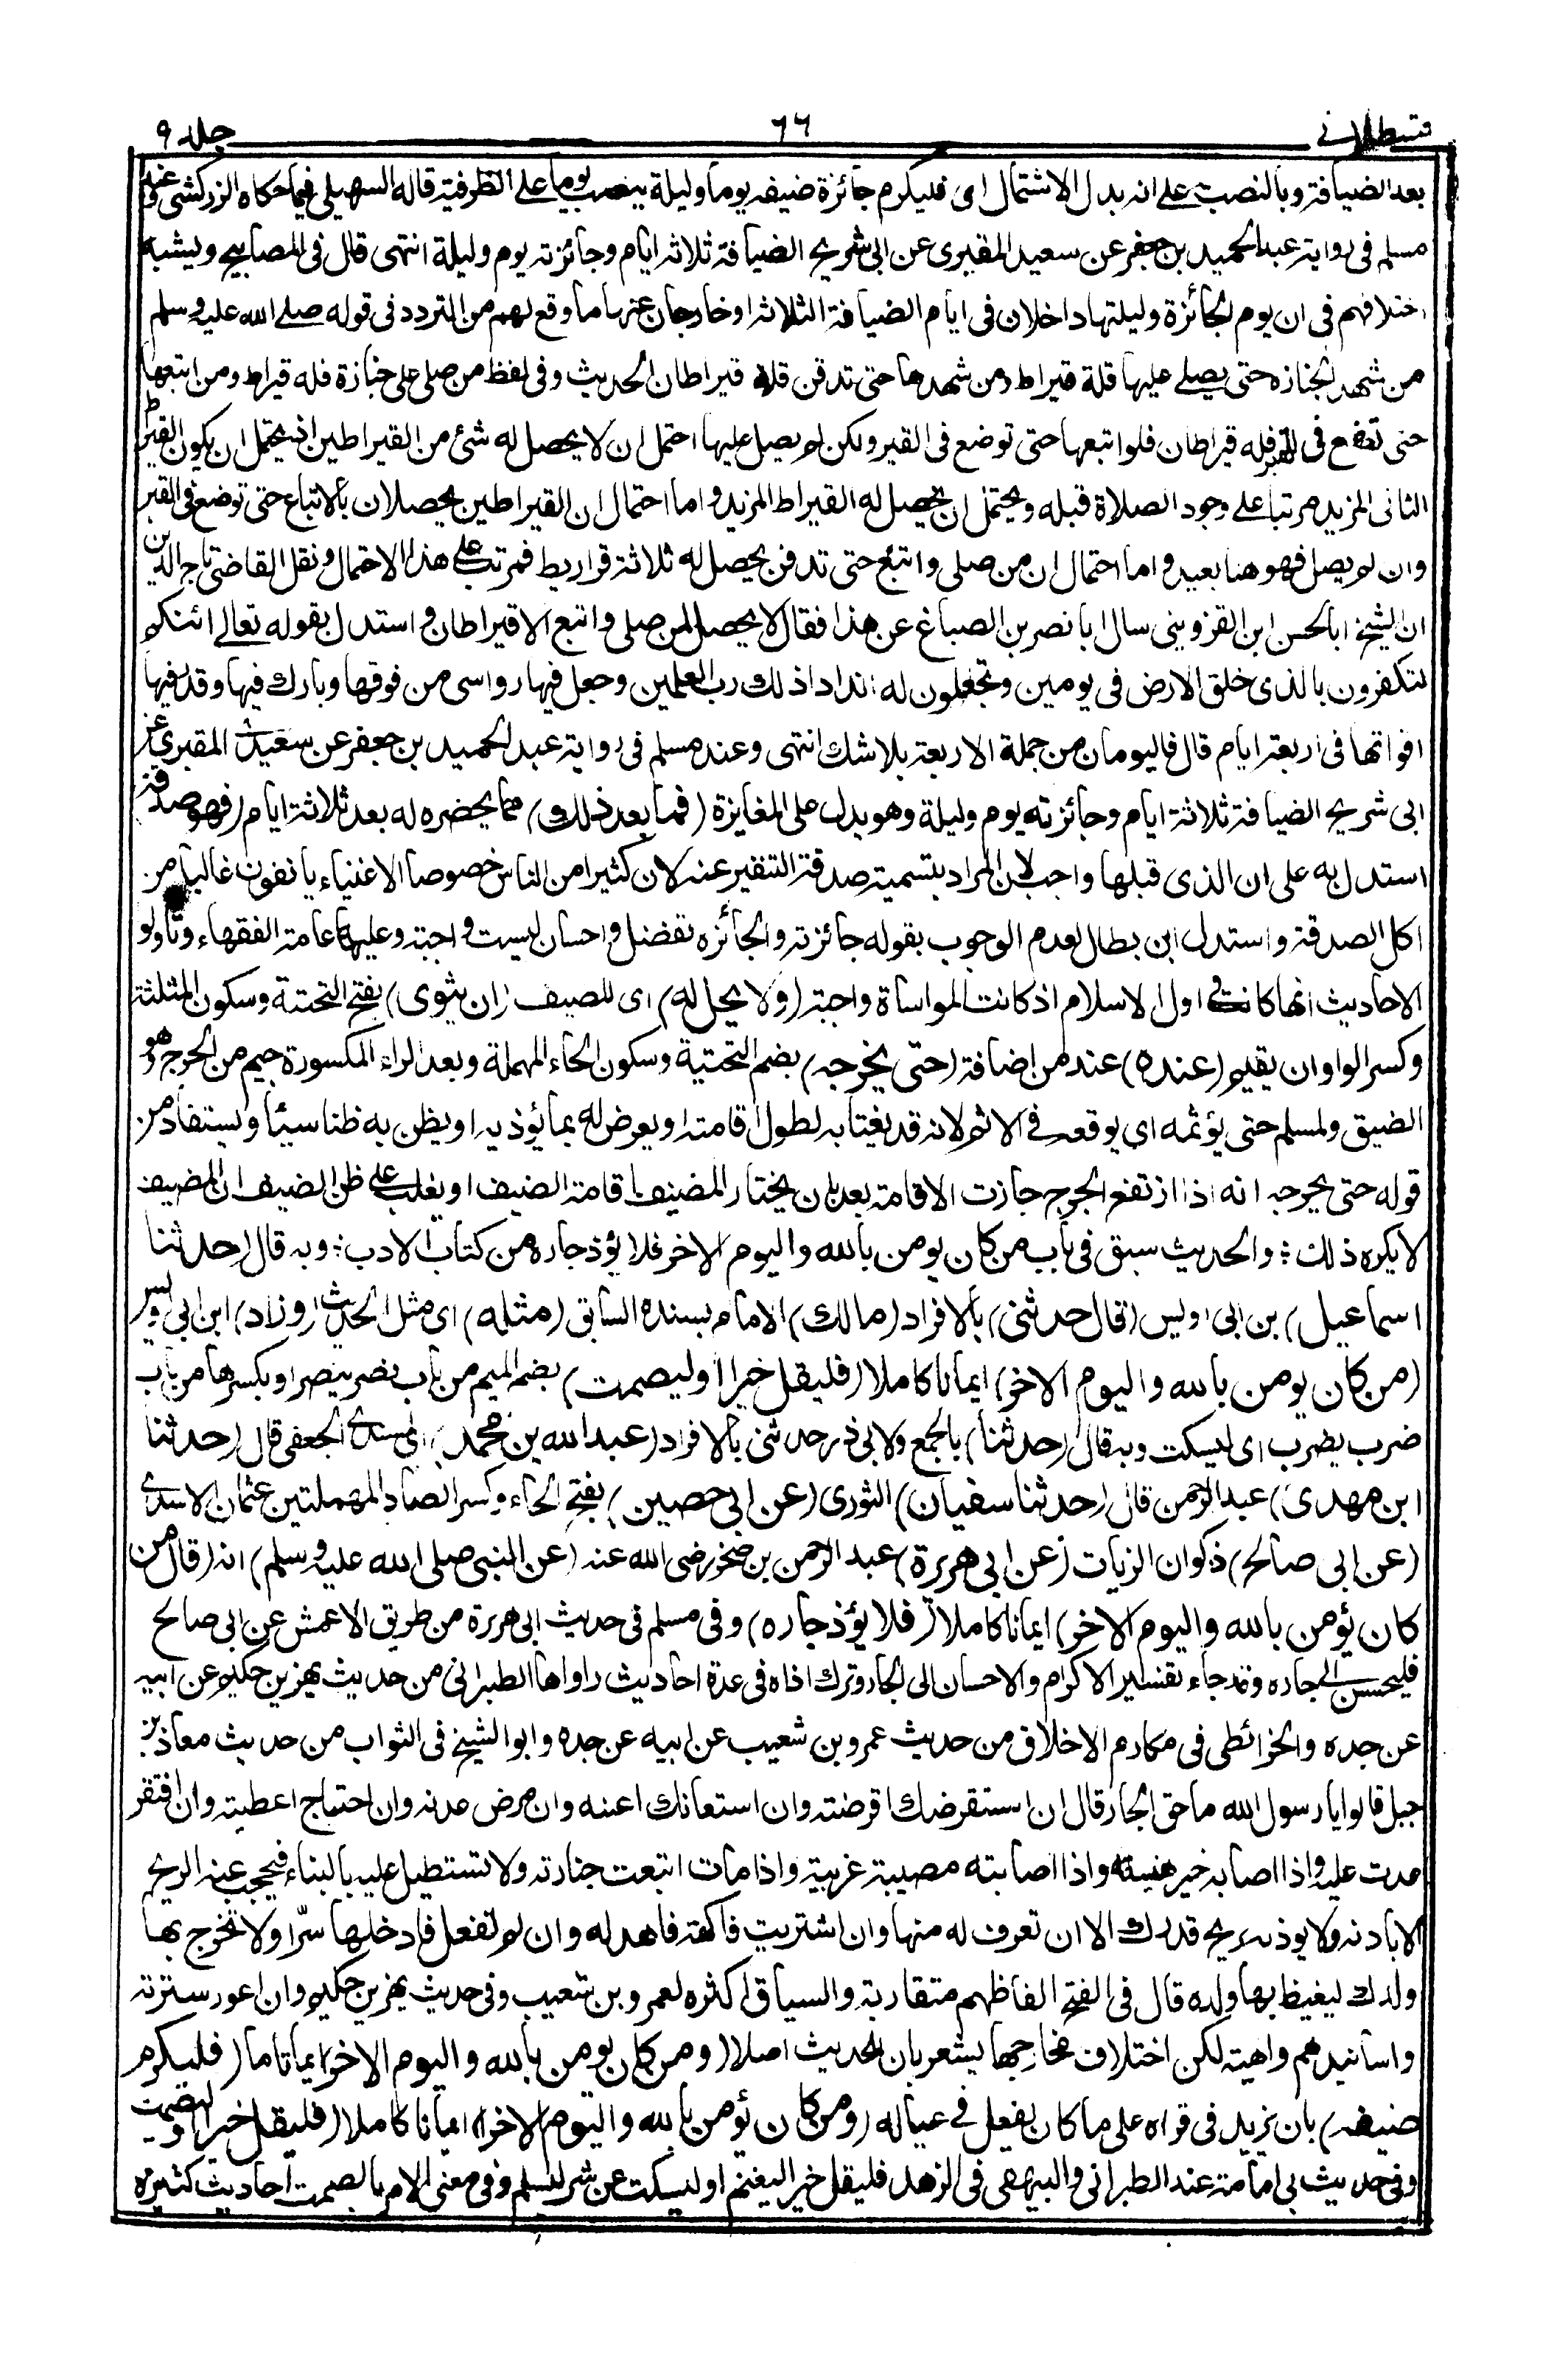 قسطلاني ٦٦ جلد ٩
بعد الضيافة وبالنصب على انه بدل الاشتمال اى فليكرم جائزة ضيفه يوما وليلة بنصب يوما على الظرفية قاله السهيلى فيما حكاه الزركشى وعند
مسلم فى رواية عبد الحميد بن جعفر عن سعيد المقبرى عن ابى شريح الضيافة ثلاثة ايام وجائزته يوم وليلة انتهى قال فى المصابيح ويشبه
اختلافهم فى ان يوم الجائزة وليلتها داخلان فى ايام الضيافة الثلاثة او خارجان عنها ما وقع لهم من التردد فى قوله صلى الله عليه وسلم
من شهد الجنازه حتى يصلے عليها قلة قيراط ومن شهدها حتى تدفن قلة قيراطان الحديث وفى لفظ من صلى على جنازة فله قيراط ومن اتبعها
حتى توضع فى القبر فله قيراطان فلو اتبعها حتى توضع فى القبر ولكن لم يصل عليها احتمل ان لا يحصل له شئ من القيراطين اذ يحتمل ان يكون القيراط
الثانى المزيد مرتبا على وجود الصلاة قبله ويحتمل ان يحصل له القيراط المزيد واما احتمال ان القيراطين يحصلان بالاتباع حتى توضع فى القبر
وان لم يصل فهو هنا بعيد واما احتمال ان من صلى واتبع حتى تدفن يحصل له ثلاثة قراريط فمرتب على هذا الاحتمال ونقل القاضى تاج الدين
ان الشيخ ابا الحسن ابن القزوينى سال ابا نصر بن الصباغ عن هذا فقال لا يحصل لمن صلى واتبع الا قيراطان واستدل بقوله تعالى ائنكم
لتكفرون بالذى خلق الارض فى يومين وتجعلون له اندادا ذلك رب العلمين وجعل فيها رواسى من فوقها وبارك فيها وقدر فيها
اقواتها فى اربعة ايام قال فاليومان من جملة الاربعة بلا شك انتهى وعند مسلم فى رواية عبد الحميد بن جعفر عن سعيد المقبرى عن
ابى شريح الضيافة ثلاثة ايام وجائزته يوم وليلة وهو يدل على المغايزة (فما بعد ذلك) مما يحضره له بعد ثلاثة ايام (فهو صدقة)
استدل به على ان الذى قبلها واجب لان المراد بتسميته صدقة التنفير عنه لان كثيرا من الناس خصوصا الاغنياء يانفون غالبا من
اكل الصدقة واستدل ابن بطال لعدم الوجوب بقوله جائزته والجائزه تفضل واحسان ليست واجبة وعليه عامة الفقهاء وتاولو
الاحاديث انها كانت فى اول الاسلام اذ كانت المواساة واجبة (ولا يحل له) اى للصيف (ان يثوى) بفتح التحتية وسكون المثلثة
وكسر الواو ان يقيم (عنده) عند من اضافة (حتى يخرجه) بضم التحتية وسكون الحاء المهملة وبعد الراء المكسورة جيم من الحرج وهو
الضيق ولمسلم حتى يؤثمه اى يوقعه فى الاثم لانه قد يغتابه لطول اقامته او يعرض له بما يؤذيه او يظن به ظنا سيئا ويستفاد من
قوله حتى يحرجه انه اذا ارتفع الحرج جازت الاقامة بعد بان يختار المضيف اقامة الضيف او يغلب على ظن الضيف ان المضيف
لا يكره ذلك ؛ والحديث سبق فى باب من كان يومن بالله واليوم الاخر فلا يؤذ جاره من كتاب الادب ؛ وبه قال (حدثنا
اسماعيل) بن ابى اويس (قال حدثنى) بالافراد (مالك) الامام بسنده السابق (مثله) اى مثل الحديث (وزاد) ابن ابى اويس
(من كان يومن بالله واليوم الاخر) ايمانا كاملا (فليقل خيرا أو ليصمت) بضم الميم من باب نصر ينصر او بكسرها من باب
ضرب يضرب اى ليسكت وبه قال (حدثنا) بالجمع ولابى ذر حدثنى بالافراد (عبد الله بن محمد) اى المسندى الجعفى قال (حدثنا
ابن مهدى) عبد الرحمن قال (حدثنا سفيان) الثورى (عن ابى حصين) بفتح الحاء وكسر الصاد المهملتين عثمان الاسدى
(عن ابى صالح) ذكوان الزيات (عن ابى هريرة) عبد الرحمن بن صخر رضى الله عنه (عن النبى صلى الله عليه وسلم) انه (قال من
كان يؤمن بالله واليوم الاخر) ايمانا كاملا (فلا يؤذ جاره) وفى مسلم فى حديث ابى هريرة من طريق الاعمش عن ابى صالح
فليحسن الى جاره وقد جاء تفسير الاكرام والاحسان الى الجار وترك اذاه فى عدة احاديث راواها الطبرانى من حديث بهز بن حكيم عن ابيه
عن جده والخرائطى فى مكارم الاخلاق من حديث عمرو بن شعيب عن ابيه عن جده وابو الشيخ فى الثواب من حديث معاذ بن
جبل قالوا يا رسول الله ما حق الجار قال ان استقرضك اقرضته وان استعانك اعنته وان مرض عدته وان احتاج اعطيته وان افتقر
عدت عليه واذا اصابه خير هنيته واذا اصابته مصيبة عزيته واذا مات اتبعت جنازته ولا تستطيل عليه بالبناء فيحجب عنه الريح
الا باذنه ولا يوذيه بريح قدرك الا ان تعرف له منها وان اشتريت فاكهة فاهد له وان لم تفعل فادخلها سرّا ولا تخرج بها
ولدك ليغيظ بها ولده قال فى الفتح الفاظهم متقاربة والسياق اكثره لعمرو بن شعيب وفى حديث بهز بن حكيم وان اعور سترته
واسانيدهم واهية لكن اختلاف مخارجها يشعر بان للحديث اصلا (ومن كان يومن بالله واليوم الاخر) ايمانا تاما (فليكرم
ضيفه) بان يزيد فى قراه على ما كان يفعل فى عياله (ومن كان يؤمن بالله واليوم الاخر) ايمانا كاملا (فليقل خيرا او ليصمت
وفى حديث ابى امامة عند الطبرانى والبيهقى فى الزهد فليقل خير اليغنم او ليسكت عن شر ليسلم وفى معنى الامر بالصمت احاديث كثيره